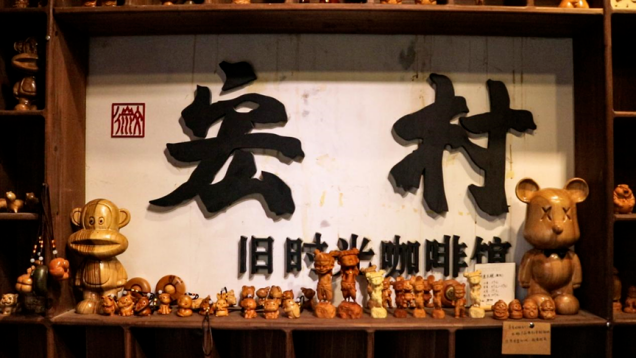 宏村
旧时光咖啡馆